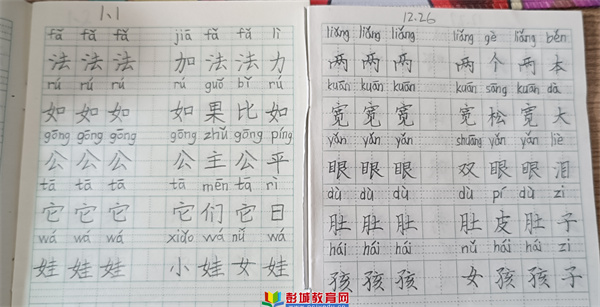 1.1
fǎ fǎ fǎ jiā fǎ fǎ lì
法 法 法 加 法 法 力
rú rú rú rú guǒ bǐ rú
如 如 如 如 果 比 如
gōng gōng gōng gōng zhǔ gōng píng
公 公 公 公 主 公 平
tā tā tā tā mēn tā rì
它 它 它 它 们 它 日
wá wá wá xiǎo wá nǚ wá
娃 娃 娃 小 娃 女 娃
12.26
liǎng liǎng liǎng liǎng gè liǎng běn
两 两 两 两 个 两 本
kuān kuān kuān kuān sōng kuān dà
宽 宽 宽 宽 松 宽 大
yǎn yǎn yǎn shuāng yǎn yǎn lèi
眼 眼 眼 双 眼 眼 泪
dù dù dù dù pí dù zi
肚 肚 肚 肚 皮 肚 子
hái hái hái nǚ hái hái zi
孩 孩 孩 女 孩 孩 子
彭城教育网